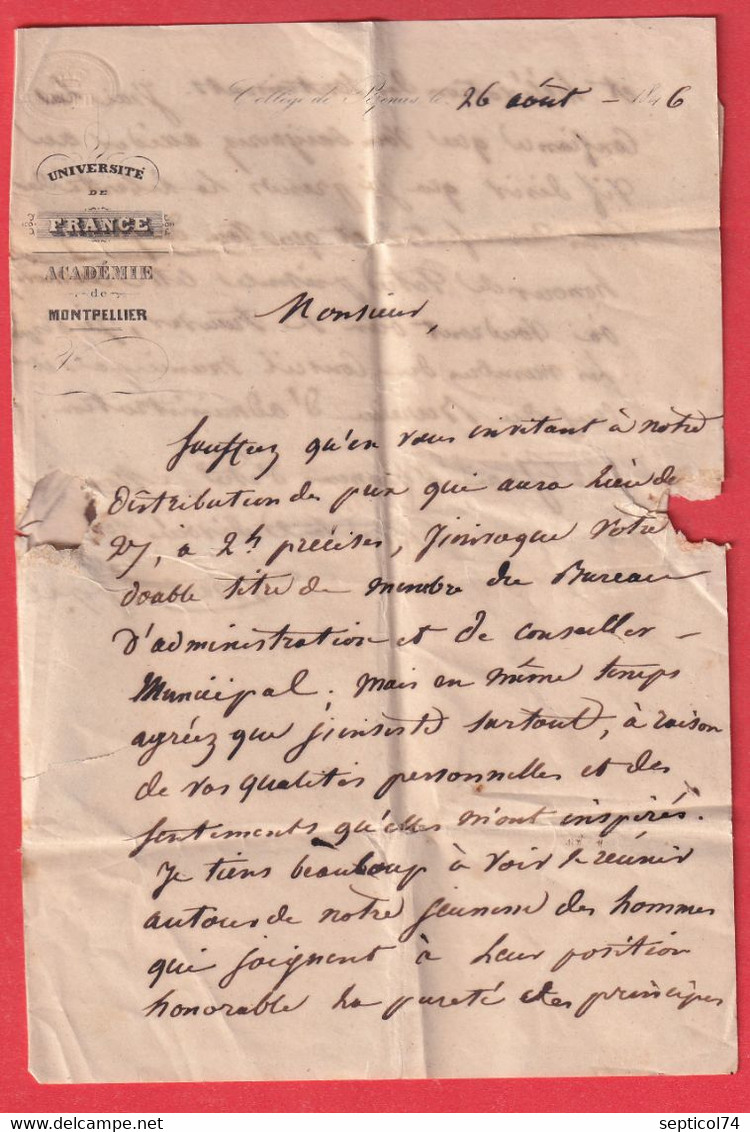 Collège de Pézenas le 26 août - 1846
UNIVERSITÉ
DE
FRANCE
ACADÉMIE
de
MONTPELLIER
Monsieur,
Souffrez qu'en vous invitant à notre
distribution des prix qui aura lieu le
27, à 2h précises, j'invoque votre
double titre de membre du Bureau
d'administration et de conseiller
Municipal. Mais en même temps
agréez que j'insiste surtout, à raison
de vos qualités personnelles et des
sentements qu'elles m'ont inspirés.
Je tiens beaucoup à voir se réunir
autour de notre jeunesse des hommes
qui joignent à leur position
honorable la pureté des principes
delcampe.net
septicol74